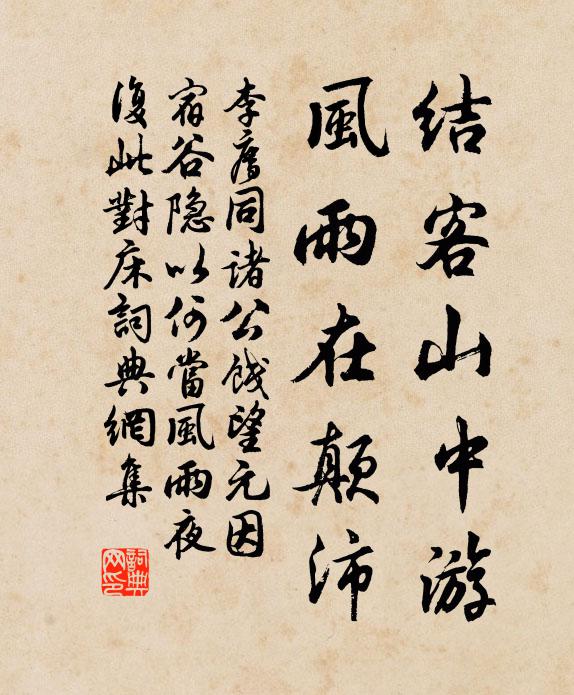 結客山中游
風雨在顛沛
李廌同諸公餞望元因
宿谷隐以何當風雨夜
復此對床詞典網集
詞典網印